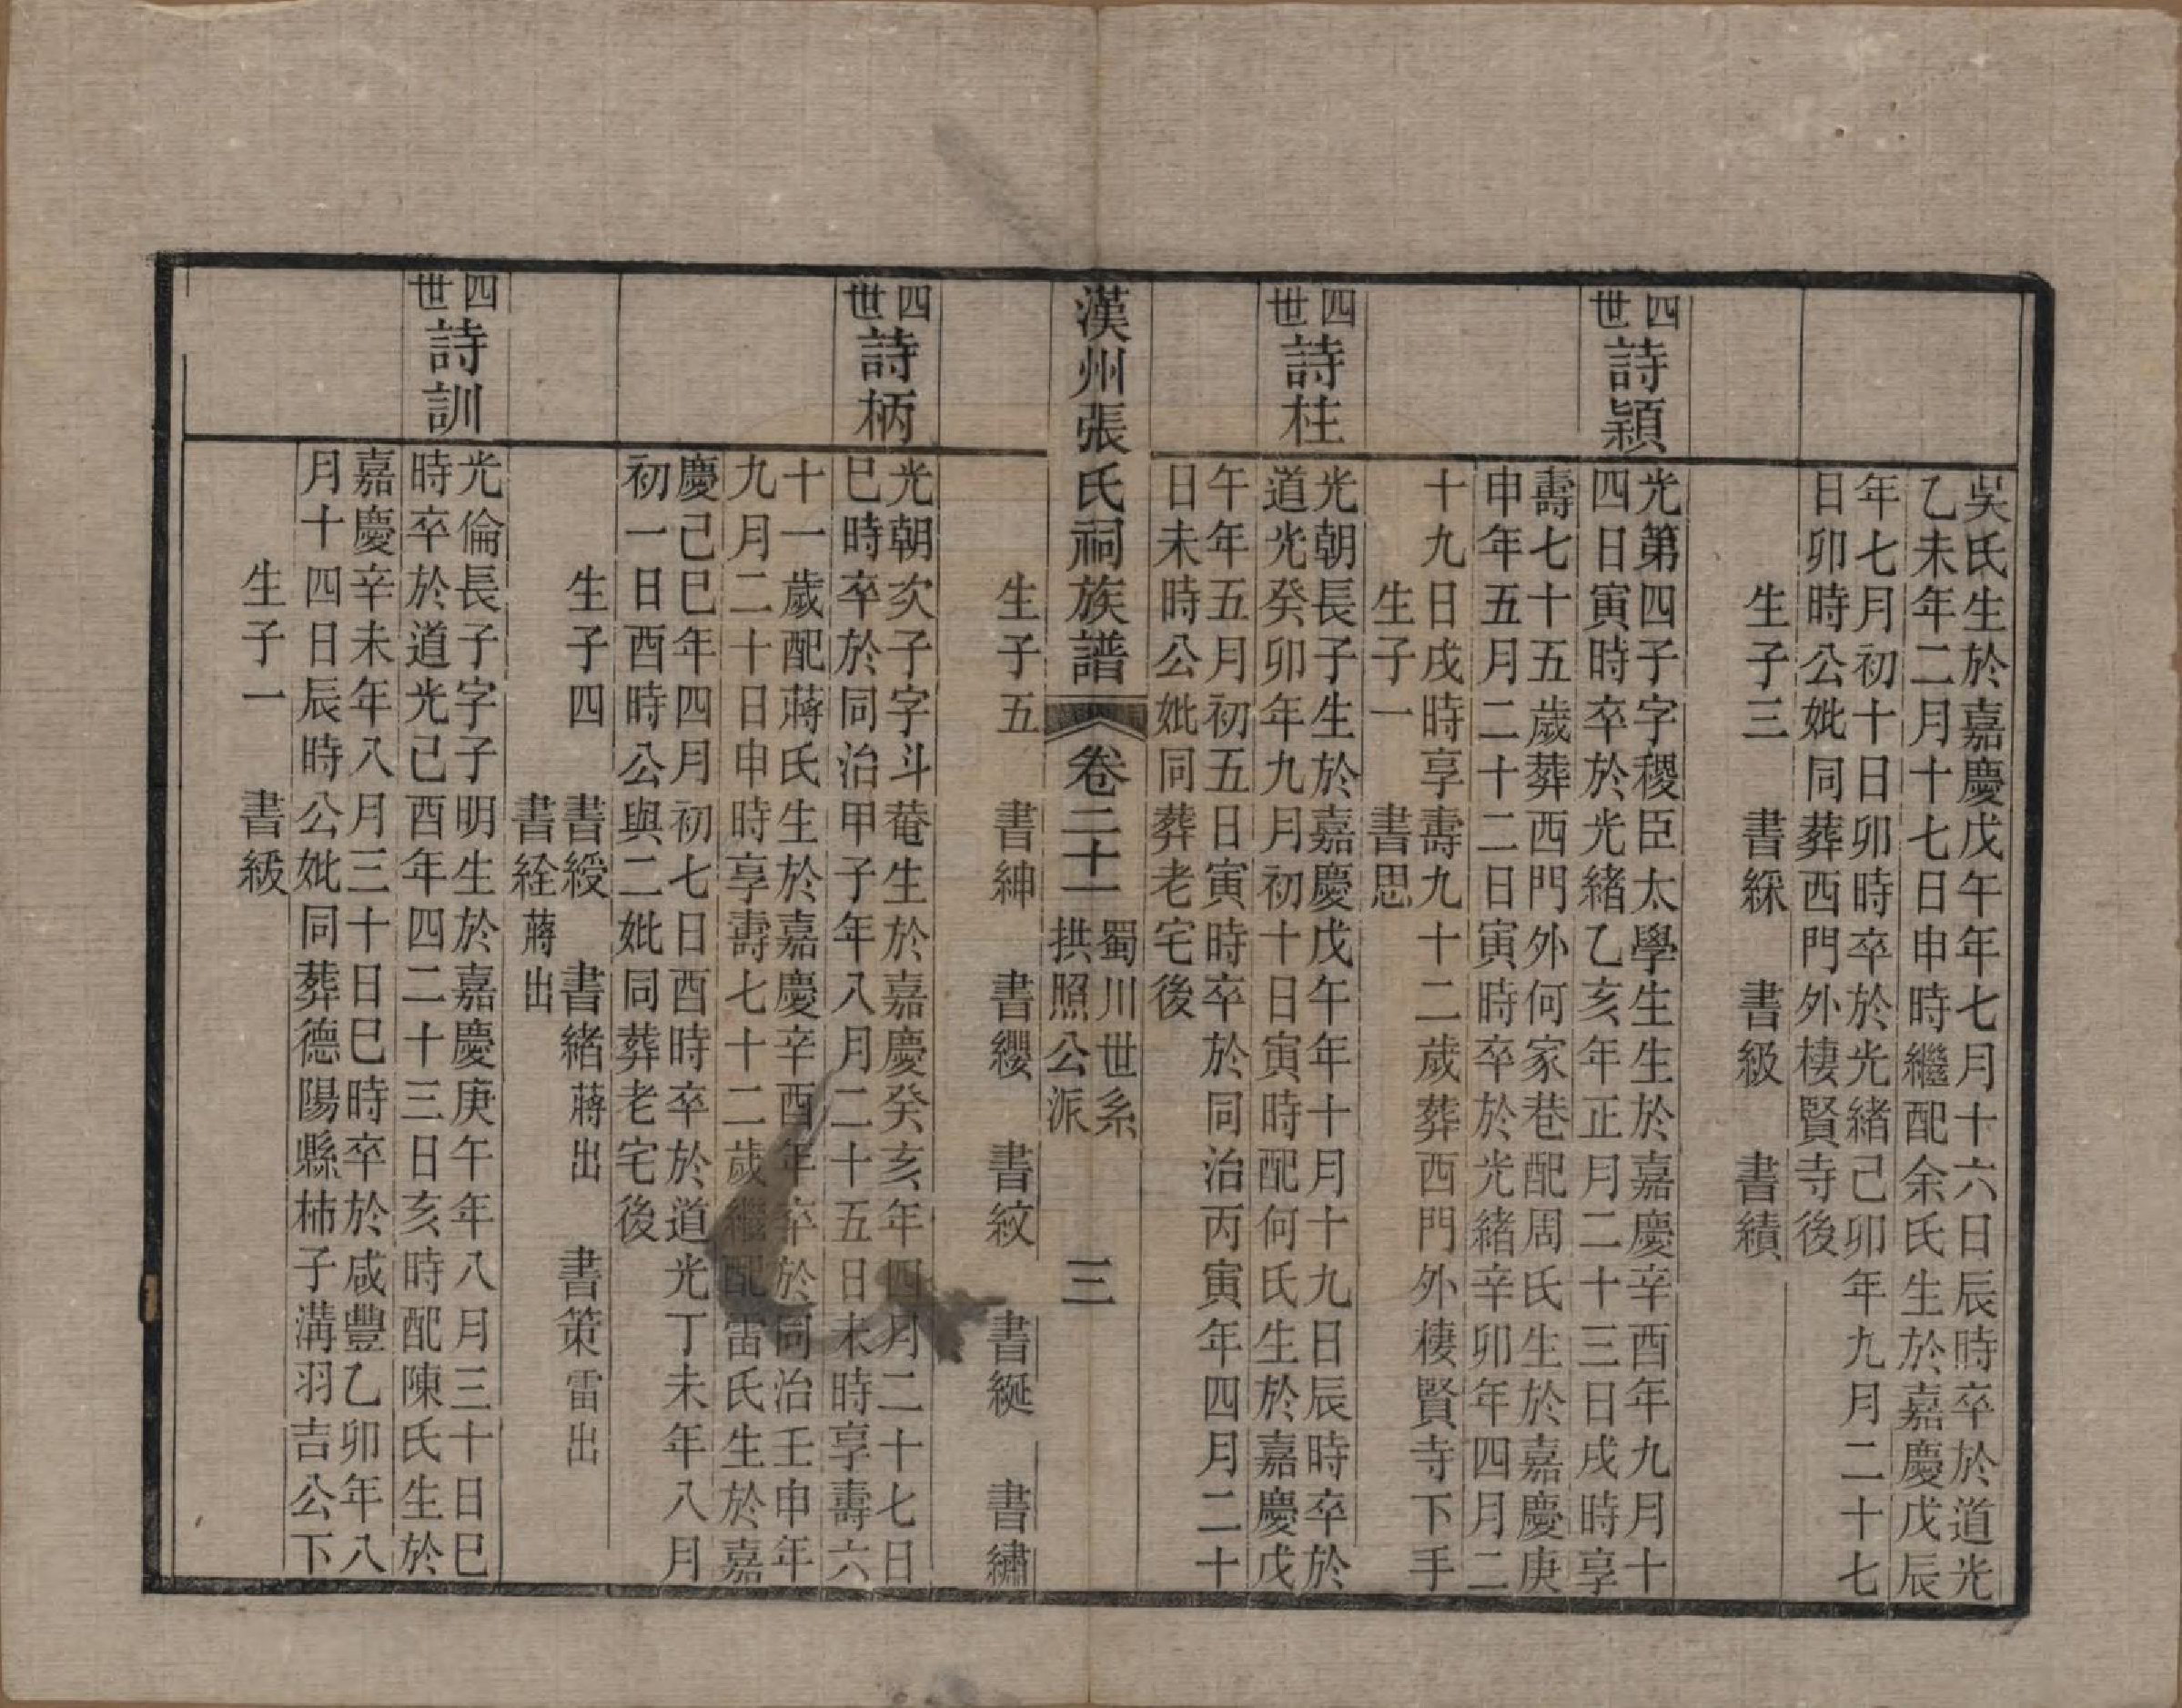 吳氏生於嘉慶戊午年七月十六日辰時卒於道光
乙未年二月十七日申時繼配余氏生於嘉慶戊辰
年七月初十日卯時卒於光緒己卯年九月二十七
日卯時公妣同葬西門外棲賢寺後
生子三 書綵 書級 書績
四世 詩穎
光第四子字稷臣太學生生於嘉慶辛酉年九月十
四日寅時卒於光緒乙亥年正月二十三日戌時享
壽七十五歲葬西門外何家巷配周氏生於嘉慶庚
申年五月二十二日寅時卒於光緒辛卯年四月二
十九日戌時享壽九十二歲葬西門外棲賢寺下手
生子一 書思
四世 詩柱
光朝長子生於嘉慶戊午年十月十九日辰時卒於
道光癸卯年九月初十日寅時配何氏生於嘉慶戊
午年五月初五日寅時卒於同治丙寅年四月二十
日未時公妣同葬老宅後
漢州張氏祠族譜 卷二十一 蜀川世系 拱照公派 三
生子五 書紳 書纓 書紋 書綖 書繡
四世 詩柄
光朝次子字斗菴生於嘉慶癸亥年四月二十七日
巳時卒於同治甲子年八月二十五日未時享壽六
十一歲配蔣氏生於嘉慶辛酉年卒於同治壬申年
九月二十日申時享壽七十二歲繼配雷氏生於嘉
慶己巳年四月初七日酉時卒於道光丁未年八月
初一日酉時公與二妣同葬老宅後
生子四 書綬 書緒蔣出 書策雷出
書絟蔣出
四世 詩訓
光倫長子字子明生於嘉慶庚午年八月三十日巳
時卒於道光己酉年四二十三日亥時配陳氏生於
嘉慶辛未年八月三十日巳時卒於咸豐乙卯年八
月十四日辰時公妣同葬德陽縣柿子溝羽吉公下
生子一 書級